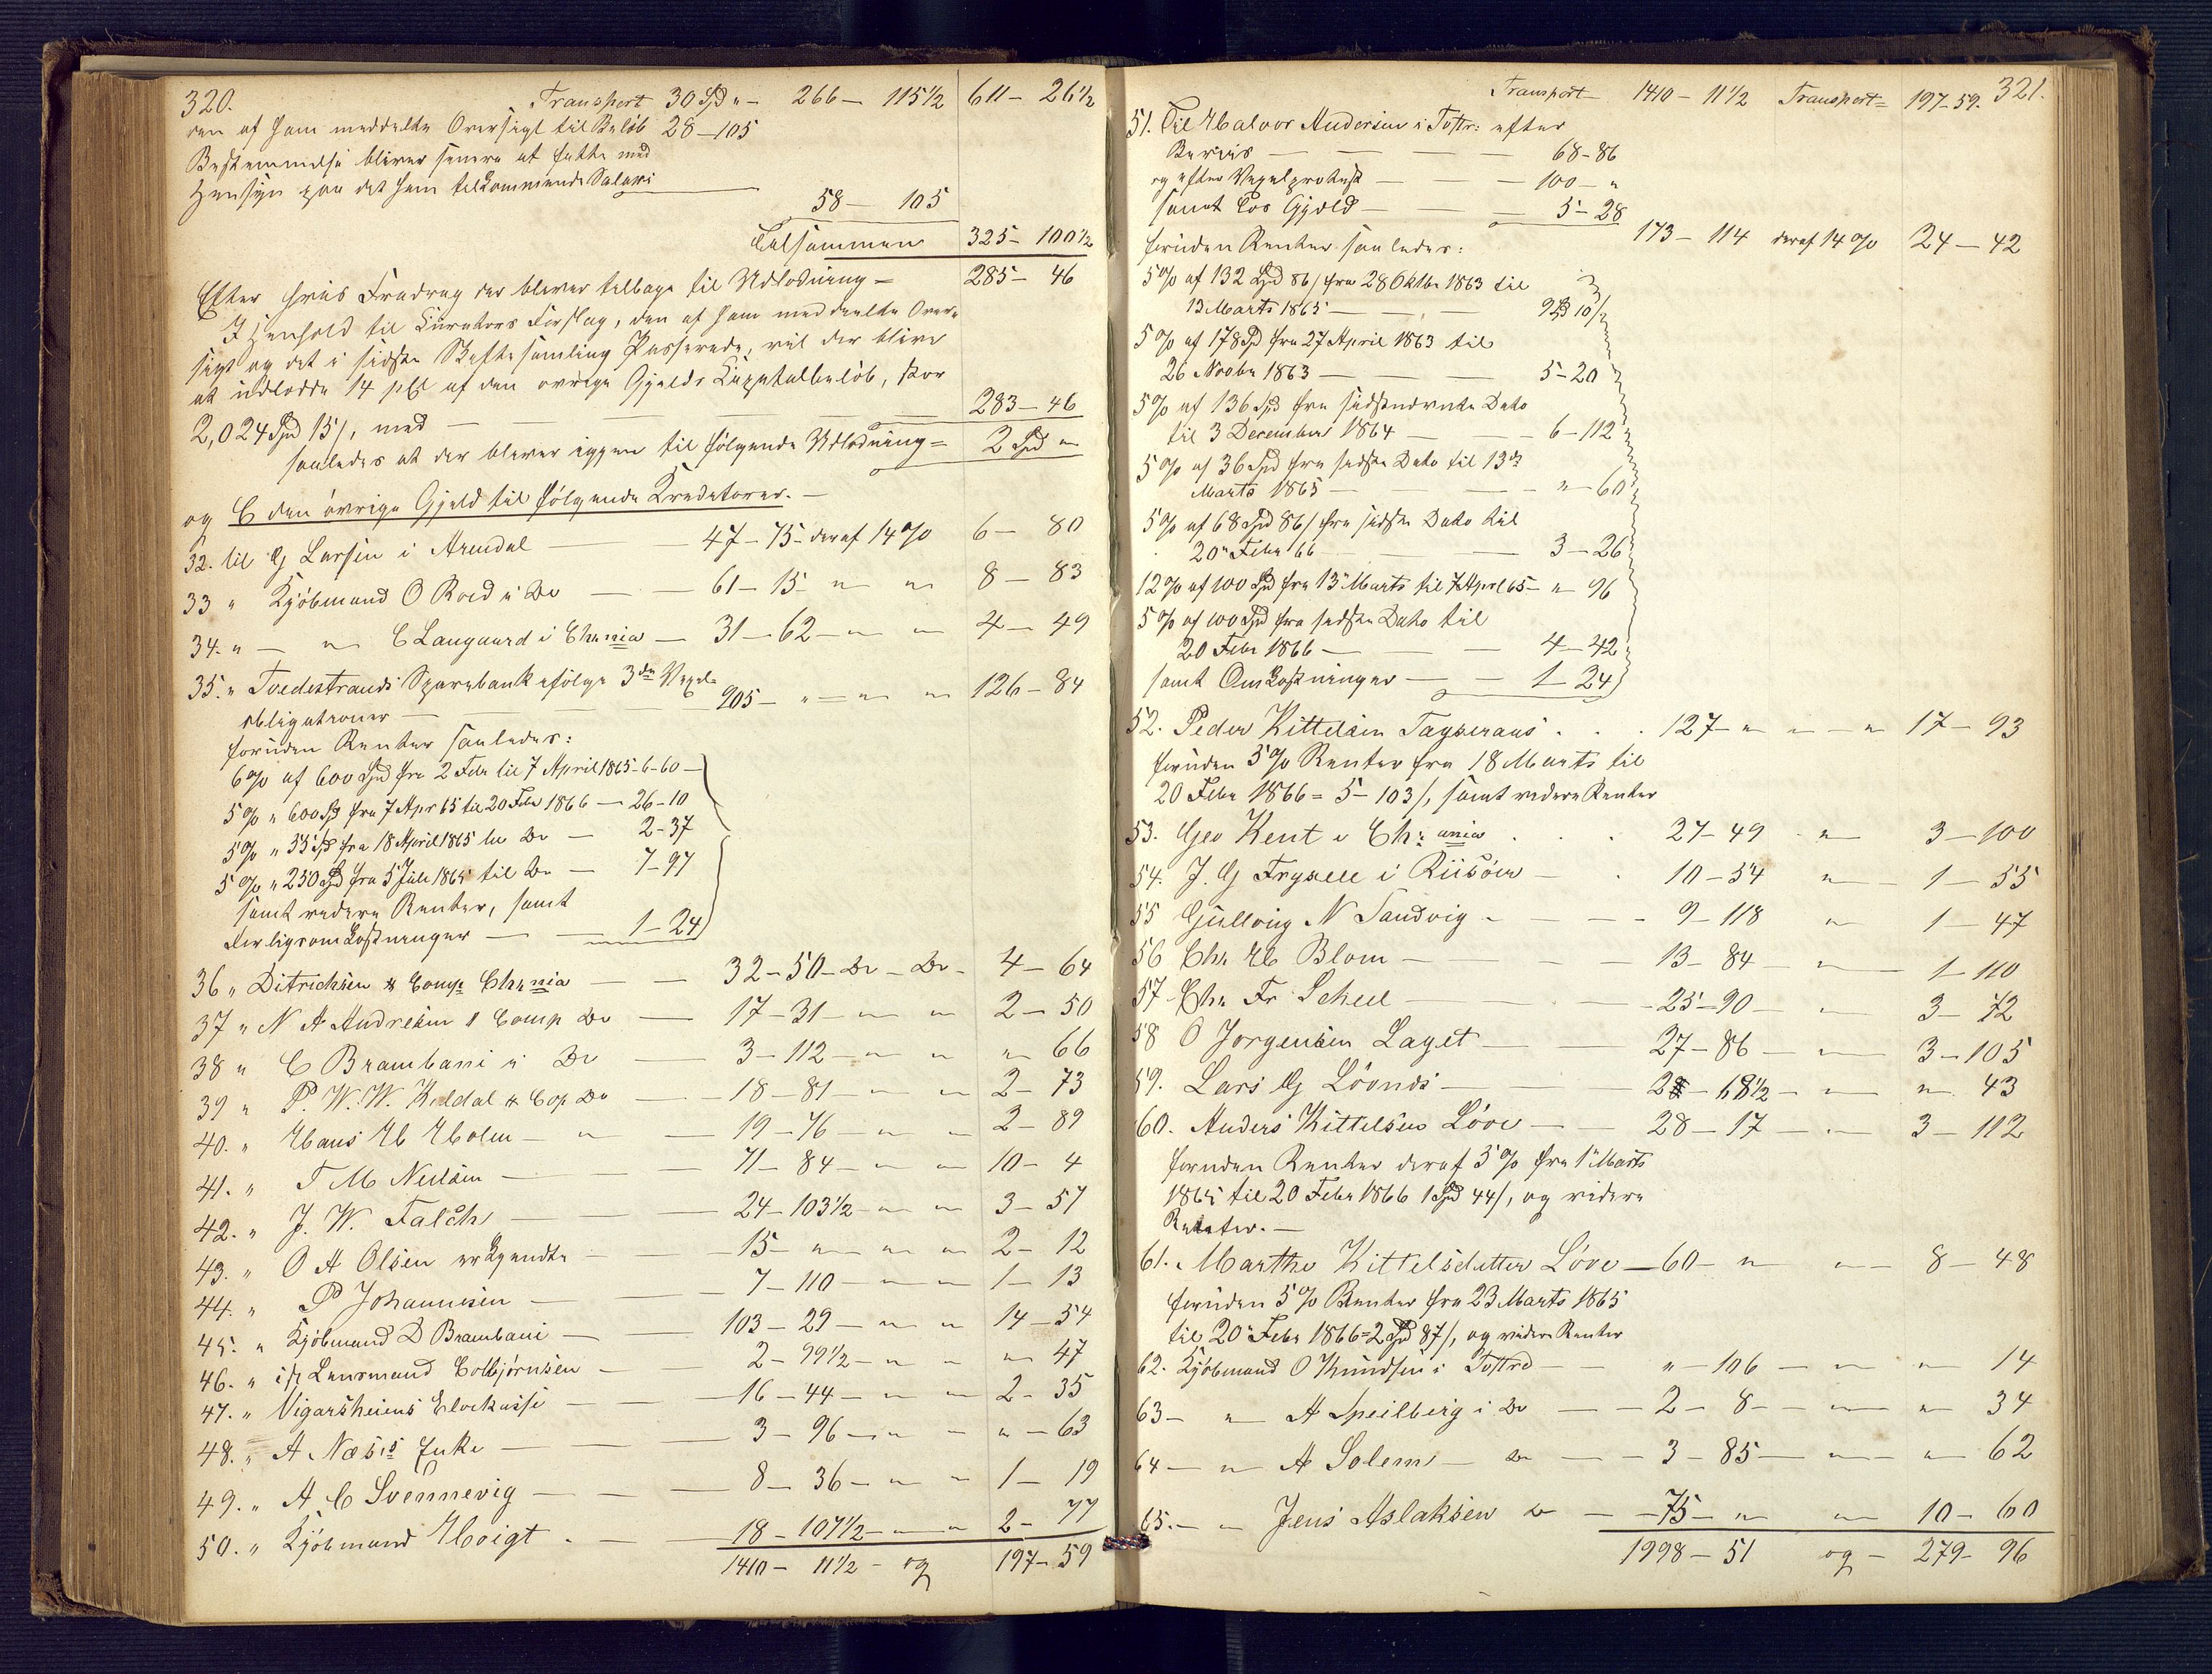 320. Transport 30 Spd " – 266 – 115 1/2 611 – 26 1/2
den af ham meddelte Oversigt til Beløb 28 – 105
Bestemmelse bliver senere at fatte med
Hensyn paa det ham tilkommende Salair
58 – 105
Tilsammen 325 – 100 1/2
Efter hvis Fradrag der bliver tilbage til Udlodning = 285 – 46
I Henhold til Curators Forslag, den af ham meddeelte Over-
sigt og det i sidste Skiftesamling Passerede, vil der blive
at udlodde 14 pCt af den øvrige Gjelds Capitalbeløb, stor
2,024 Spd 15 ß, med – 283 – 46
saaledes at der bliver igjen til følgende Udlodning = 2 Spd "
og C den øvrige Gjeld til følgende Kreditorer. –
32. til G Larsen i Arendal – 47 – 75 – deraf 14 % 6 – 80
33 " Kjøbmand O Roed i Do – 61 – 15 – " – " 8 – 83
34. " – " C Langaard i Chrnia – 31 – 62 – " – " 4 – 49
35. " Tvedestrands Sparebank ifølge 3de Vexel-
obligationer – 905 – " – " – " 126 – 84
foruden Renter saaledes:
6 % af 600 Spd fra 2 Febr til 7 April 1865 – 6 – 60 –
5 % " 600 Spd fra 7 Apr 65 til 20 Febr 1866 – 26 – 10
5 % " 55 Spd fra 18 April 1865 til Do – 2 – 37
5 % " 250 Spd fra 5 Juli 1865 til Do – 7 – 97
samt videre Renter, samt
– 1 – 24
36 " Ditrichsen & Comp Chrnia – 32 – 50 – Do – Do – 4 – 64
37 " N A Andresen & Comp Do – 17 – 31 – " – " 2 – 50
38 " C Brambani i Do – 3 – 112 – " – " " 66
39 " P. W. W. Kildal & Cop Do – 18 – 81 – " – " 2 – 73
40. " Hans H Holm – " – 19 – 76 – " – " 2 – 89
41. " T M Nielsen – 71 – 84 – " – " 10 – 4
42. " J. W. Falch – 24 – 103 1/2 – " – " 3 – 57
43. " O A Olsen – 15 – " – " – " 2 – 12
44. " P Johannesen – 7 – 110 – " – " 1 – 13
45. " Kjøbmand D Brambani – 103 – 29 – " – " 14 – 54
46. " Lensmand Colbjørnsen – 2 – 99 1/2 – " – " " 47
47. " Vigarsheiens – 16 – 44 – " – " 2 – 35
48. " A Næss's Enke – 3 – 96 – " – " " – 63
49. " A C Svennevig – 8 – 36 – " – " 1 – 19
50. " Kjøbmand Hoigt – 18 – 107 1/2 – " – " 2 – 77
1410 – 11 1/2 – og 197 – 59
Transport – 1410 – 11 1/2 Transport = 197 – 59. 321.
51. Til Halvor Andersen i Tvstr: efter
Beviis – 68 – 86
og efter Vexelprotest – 100 – "
samt Cos Gjæld – 5 – 28
173 – 114 deraf 14 % 24 – 42
foruden Renter saaledes:
5 % af 132 Spd 86 ß fra 28 Oktbr 1863 til
13 Marts 1865 –
5 % af 178 Spd fra 27 April 1863 til
26 Novbr 1863 – 5 – 20
5 % af 136 Spd fra sidstnævnte Dato
til 3 December 1864 – 6 – 112
5 % af 36 Spd fra sidste Dato til 13de
Marts 1865 – " – 60
5 % af 68 Spd 86 ß fra sidste Dato til
20 Febr 66 – 3 – 26
12 % af 100 Spd fra 13 Marts til 7 April 65 – " 96
5 % af 100 Spd fra sidste Dato til
20 Febr 1866 – 4 – 42
samt Omkostninger – 1 – 24
52. Peder Kittelsen – 127 – " – " – " 17 – 93
foruden 5 % Renter fra 18 Marts til
20 Febr 1866 = 5 – 103 ß, samt videre Renter
53. Geo Kent i Chrania – 27 – 49 – " – 3 – 100
54. J. G Frysell i Riisøer – 10 – 54 " – 1 – 55
55 Gullovig N Sandvig – 9 – 118 " 1 – 47
56 Chr H Blom – 13 – 84 – " – 1 – 110
57 Chr Fr Scheel – 25 – 90 – " – 3 – 72
58 O Jorgensen Laget – 27 – 86 – " – 3 – 105
59. Lars G Løvnds – 2 – 68 1/2 – " – " 43
60. Anders Kittelsen Løve – 28 – 17 – " – 3 – 112
foruden Renter deraf 5 % fra 1 Marts
1865 til 20 Febr 1866 1 Spd 44 ß, og videre
Renter. –
61. Marthe Kittelsdatter Løve – 60 – " " – 8 – 48
foruden 5 % Renter fra 23 Marts 1865
til 20 Febr 1866 = 2 Spd 87 ß, og videre Renter
62. Kjøbmand O Knudsen i Tvstrd – " – 106 – " – " 14
63 – " – A Speilberg i Do – 2 – 8 – " – " 34
64 – " – A Solem – Do – 3 – 85 – " – " 62
65. – " Jens Aslaksen Do – 75 – " " – 10 – 60
1998 – 51 og – 279 – 96